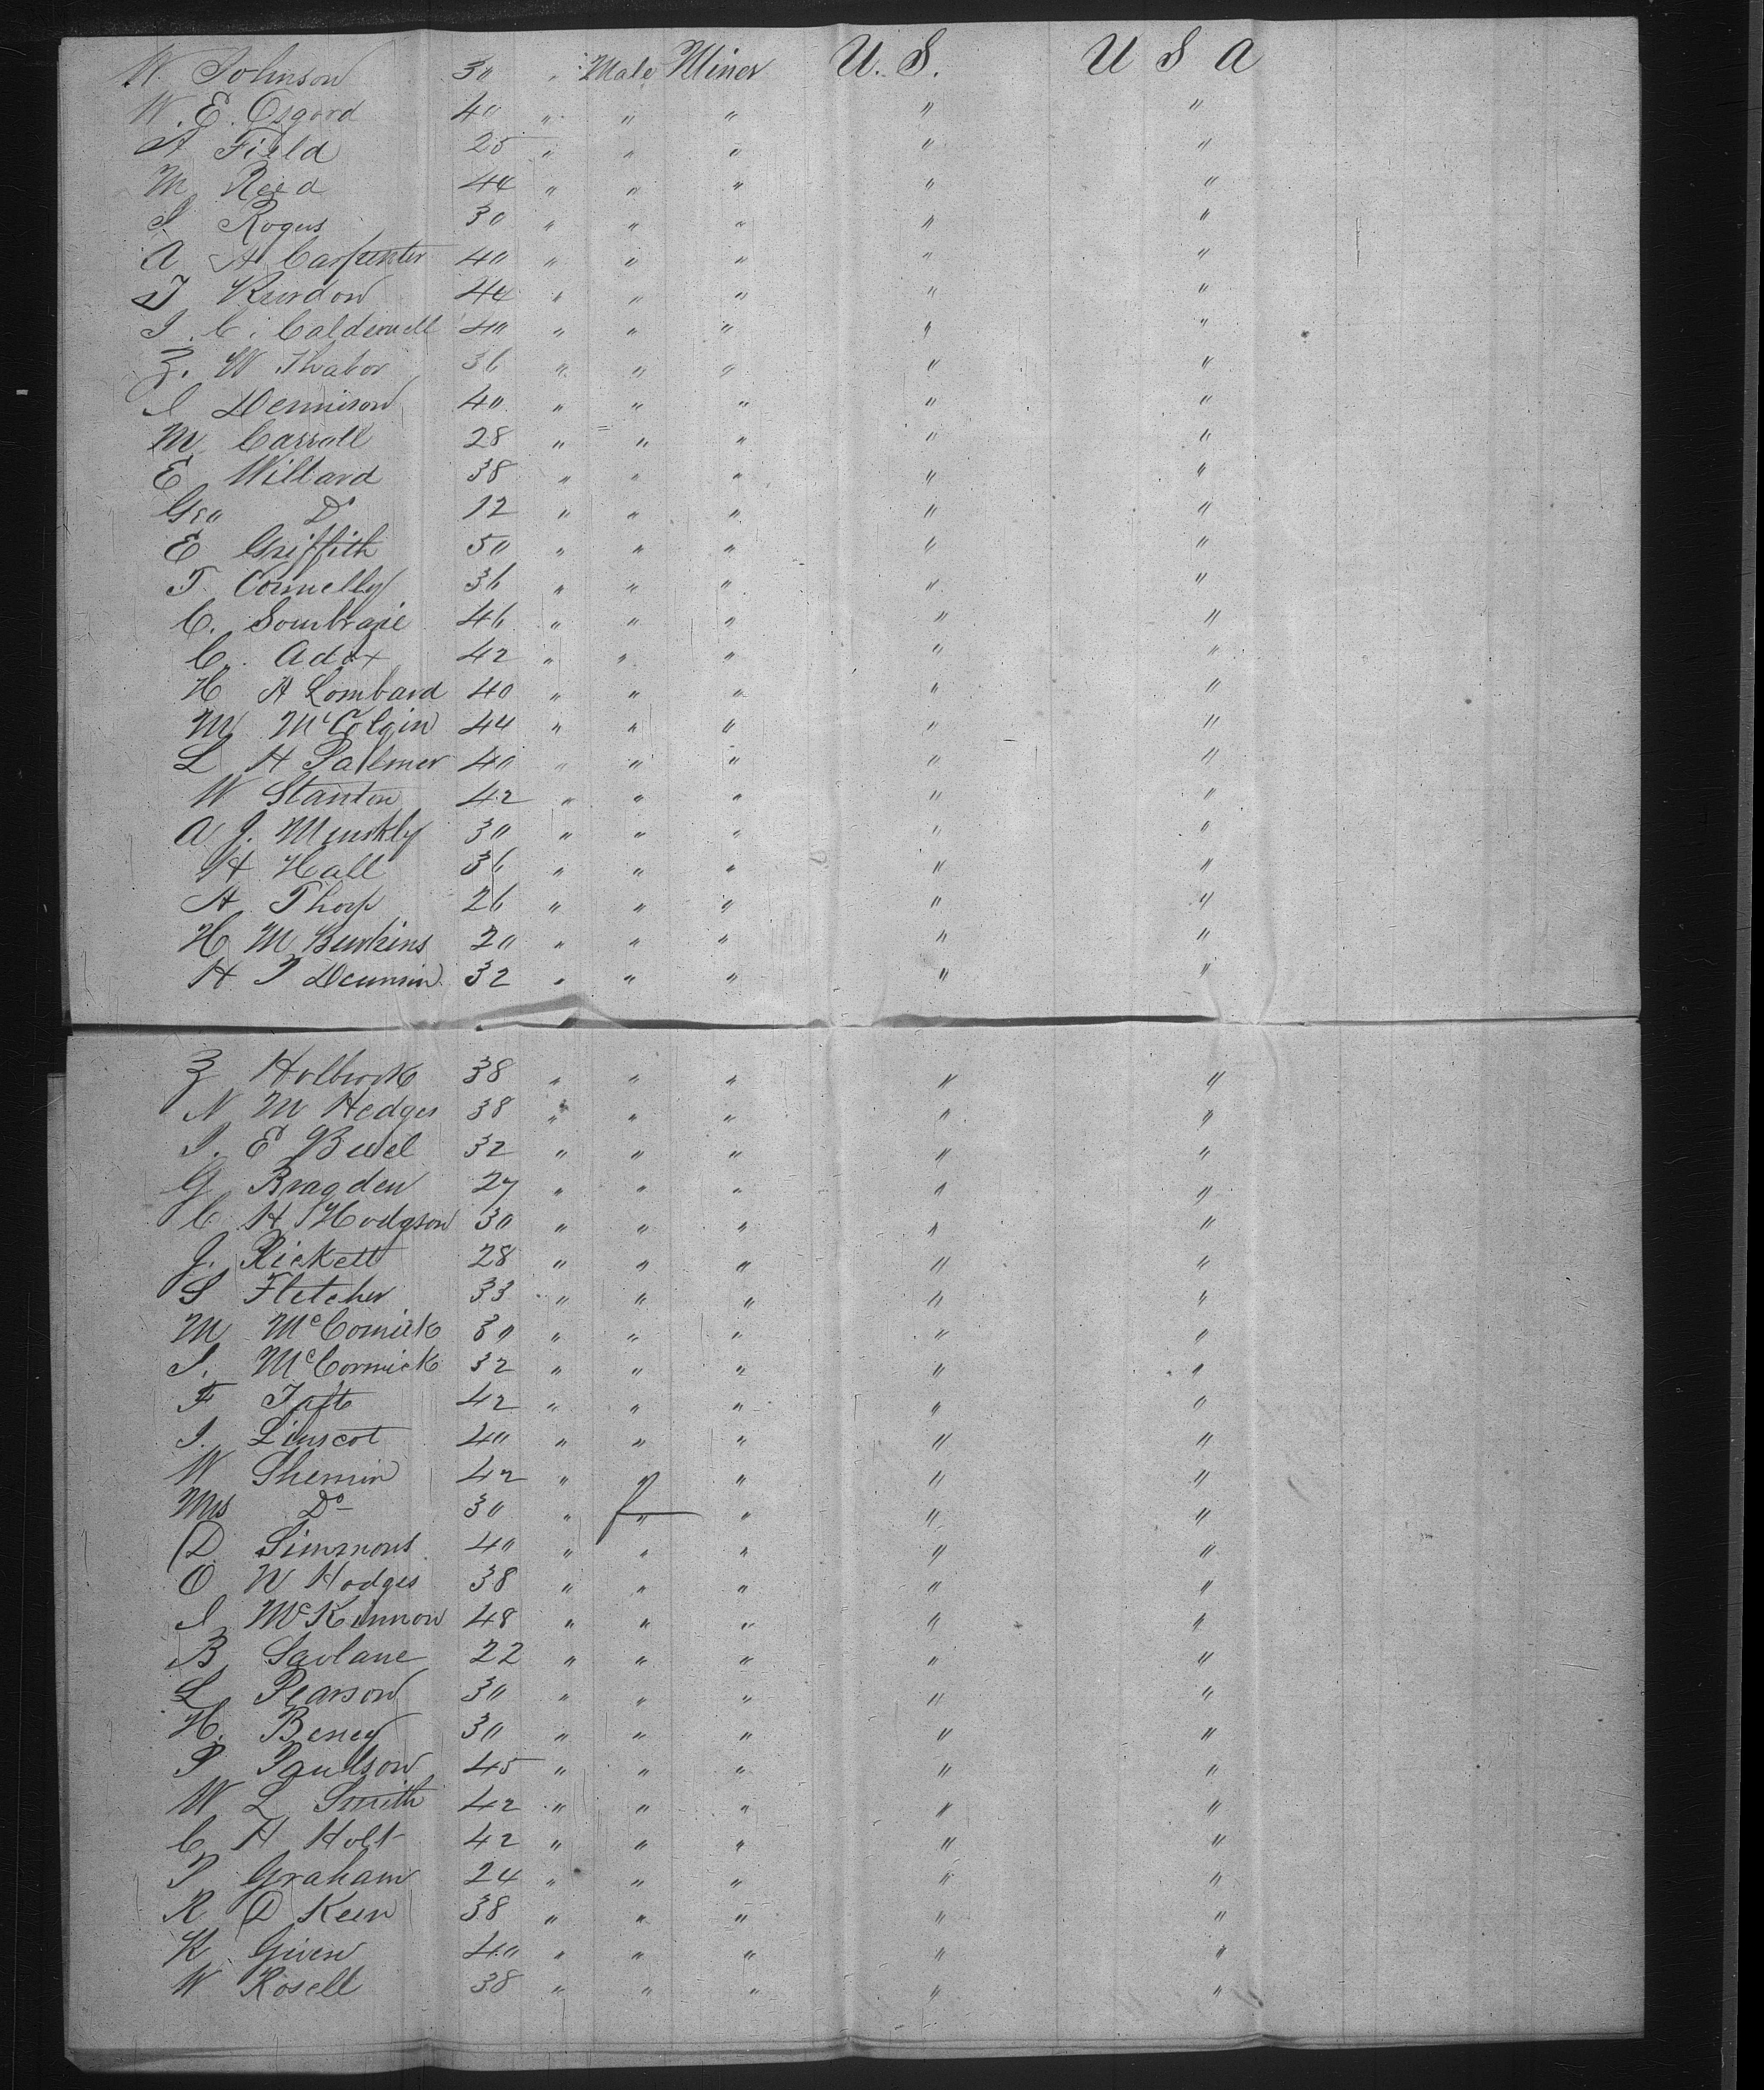 W. Johnson 30 " Male Miner U. S. U S A
W. E. Osgord 40 " " " " "
A Field 25 " " " " "
M Reed 44 " " " " "
S Rogus 30 " " " " "
A A Carpenter 40 " " " " "
J 44 " " " " "
J. C. Calderwell 40 " " " " "
Z. W Thabor 36 " " " " "
J Dennison 40 " " " " "
M Carroll 28 " " " " "
E Willard 38 " " " " "
Geo Do 12 " " " " "
E Griffith 50 " " " " "
T. Connelly 36 " " " " "
C. 46 " " " " "
C. 42 " " " " "
H A Lombard 40 " " " " "
M McColgin 44 " " " " "
L H Palmer 40 " " " " "
W Stanton 42 " " " " "
A J. Munkly 30 " " " " "
H Hall 36 " " " " "
A Thorp 26 " " " " "
H M Burkins 20 " " " " "
H P 32 " " " " "
Z Holbrook 38 " " " " "
N M Hedges 38 " " " " "
J. E Buel 32 " " " " "
G Bragden 27 " " " " "
C H Hodgson 30 " " " " "
J. Rickett 28 " " " " "
S Fletcher 33 " " " " "
M McComick 30 " " " " "
J. McCormick 32 " " " " "
F Taft 42 " " " " "
J. Linscot 40 " " " " "
W Shemin 42 " " " " "
Mrs Do 30 " f " " "
D Simmons 40 " " " " "
O W Hodges 38 " " " " "
J McKinnon 48 " " " " "
B Savlane 22 " " " " "
L Pearson 30 " " " " "
H. Beney 30 " " " " "
P Paulson 45 " " " " "
W L Smith 42 " " " " "
C H Holt 42 " " " " "
P Graham 24 " " " " "
R D Keen 38 " " " " "
K Given 40 " " " " "
W Rosell 38 " " " " "